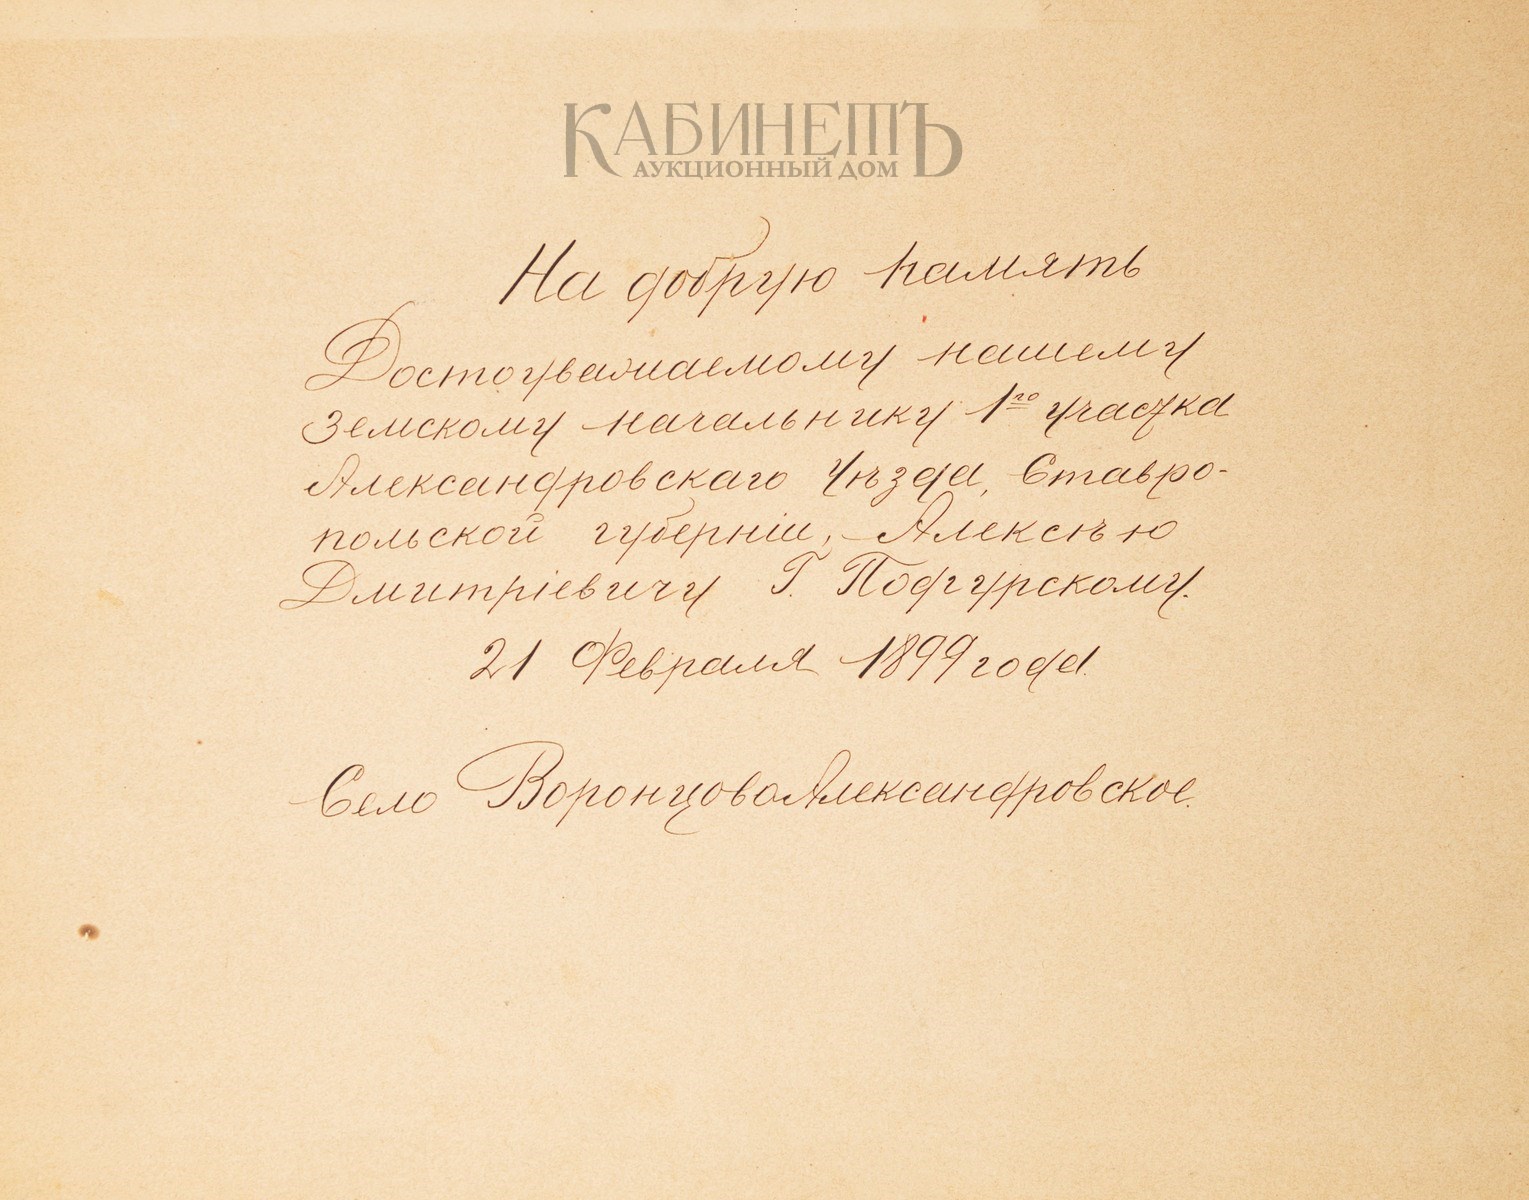 КАБИНЕТЪ
АУКЦИОННЫЙ ДОМ
На добрую память
Достоуважаемому нашему
Земскому начальнику 1го участка
Александровскаго Уѣзда, Ставро-
польской губерніи, Алексѣю
Дмитріевичу Г. Подгурскому.
21 Февраля 1899 года.
Село ВоронцовоАлександровское.